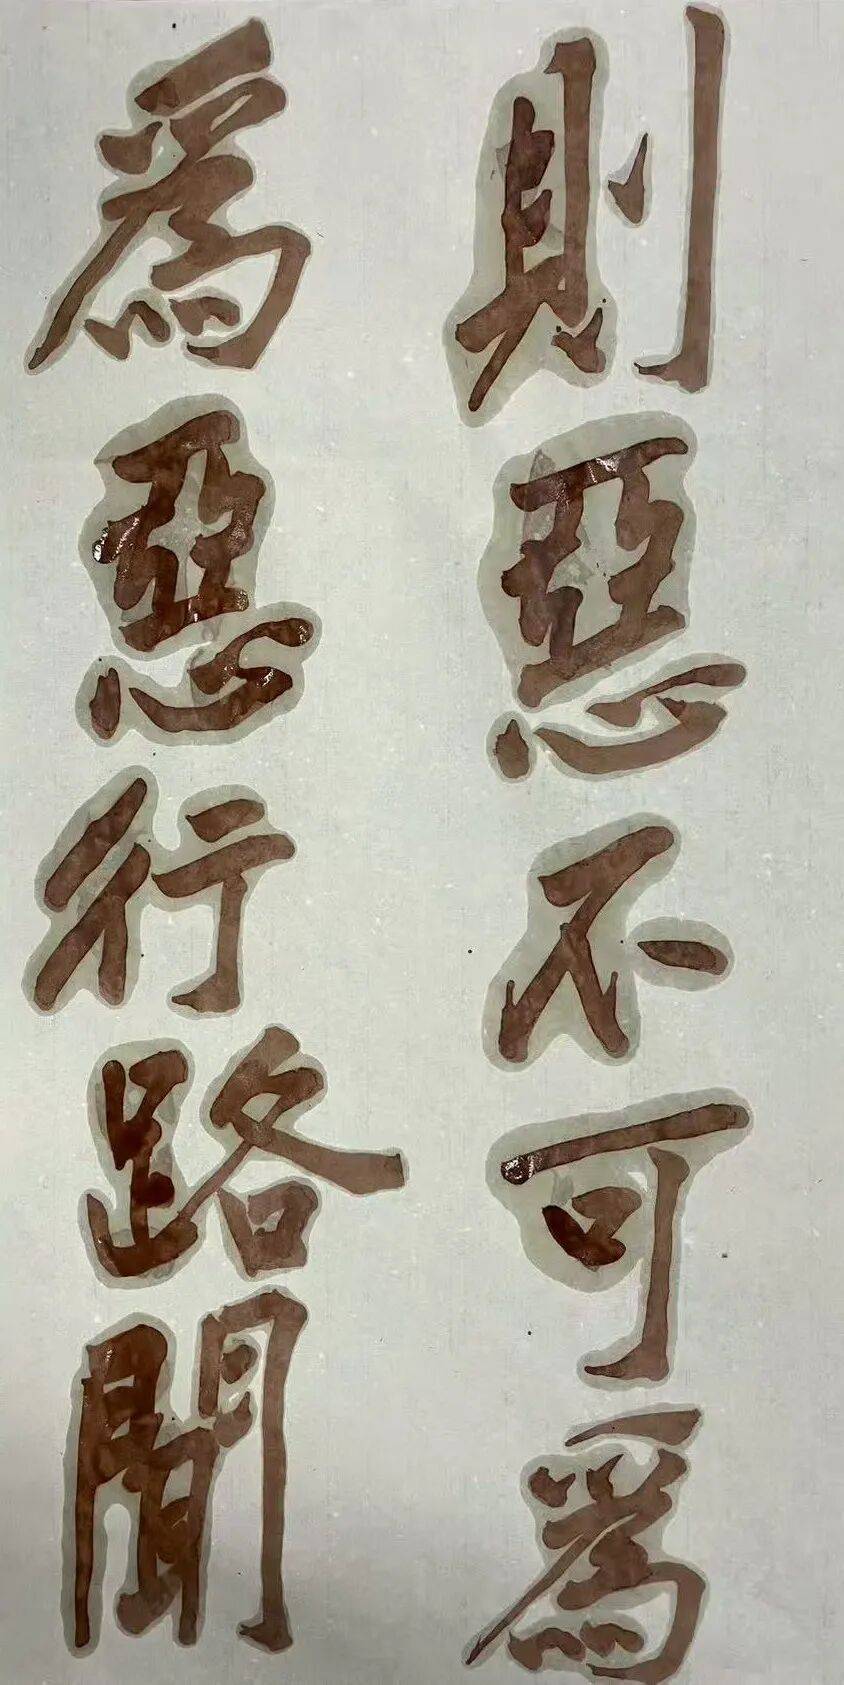 則惡不可爲
爲惡行路聞